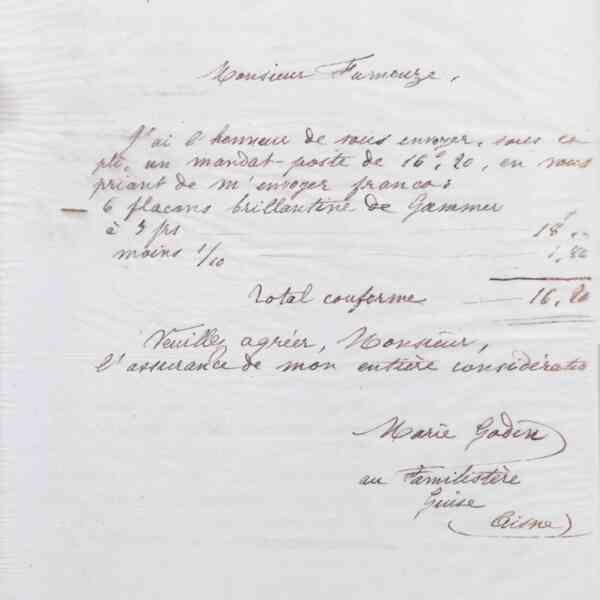 Monsieur Fumouze,
J'ai l'honneur de vous envoyer, sous ce
pli, un mandat-poste de 16f,20, en vous
priant de m'envoyer franco :
6 flacons brillantine de
à 3 frs 18f,,
moins 1/10 1,80
Total conforme 16,20
Veuillez agréer, Monsieur,
l'assurance de mon entière considératio
Marie Godin
au Familistère
Guise
(Aisne)